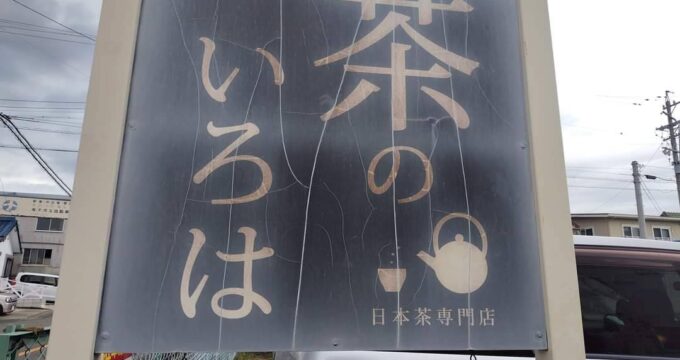 茶の
いろは
日本茶専門店